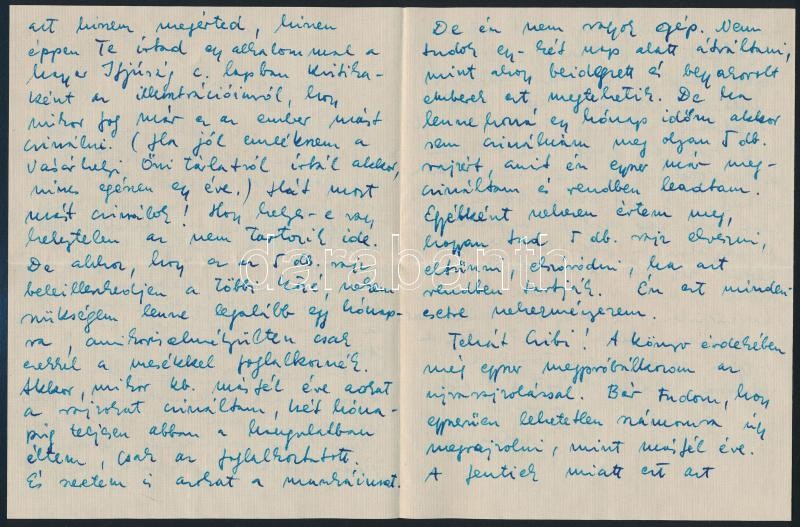 azt hiszem megérted, hiszen
éppen Te írtad egy alkalommal a
Magyar Ifjúság c. lapban kritika-
ként az illusztrációimról, hogy
mikor fog már ez az ember mást
csinálni. (Ha jól emlékszem a
Vásárhelyi Őszi tárlatról írtál akkor,
nincs egészen egy éve.) Hát most
mást csinálok! Hogy helyes-e vagy
helytelen az nem tartozik ide.
De ahhoz, hogy ez az 5 db. rajz
beleilleszkedjen a többi közé, nekem
szükségem lenne legalább egy hónap-
ra, amikor elmélyülten csak
ezekkel a mesékkel foglalkoznék.
Akkor, mikor kb. másfél éve azokat
a rajzokat csináltam, két hóna-
pig teljesen abban a hangulatban
éltem, csak az foglalkoztatott.
És szeretem is azokat a munkáimat.
De én nem vagyok gép. Nem
tudok egy-két nap alatt átváltani,
mint ahogy beidegzett és begyakorolt
emberek ezt megtehetik. De ha
lenne hozzá egy hónap időm akkor
sem csinálnám meg olyan 5 db.
rajzért amit én egyszer már meg-
csináltam és rendben leadtam.
Egyébként nehezen értem meg,
hogyan tud 5 db. rajz elveszni,
eltűnni, elsodródni, ha azt
rendben tartják. Én ezt minden-
esetre nehezményezem.
Tehát Csibi! A könyv érdekében
még egyszer megpróbálkozom az
újrarajzolással. Bár tudom, hogy
egyszerűen lehetetlen számomra úgy
megrajzolni, mint másfél éve.
A fentiek miatt ezt azt
darabanth.com